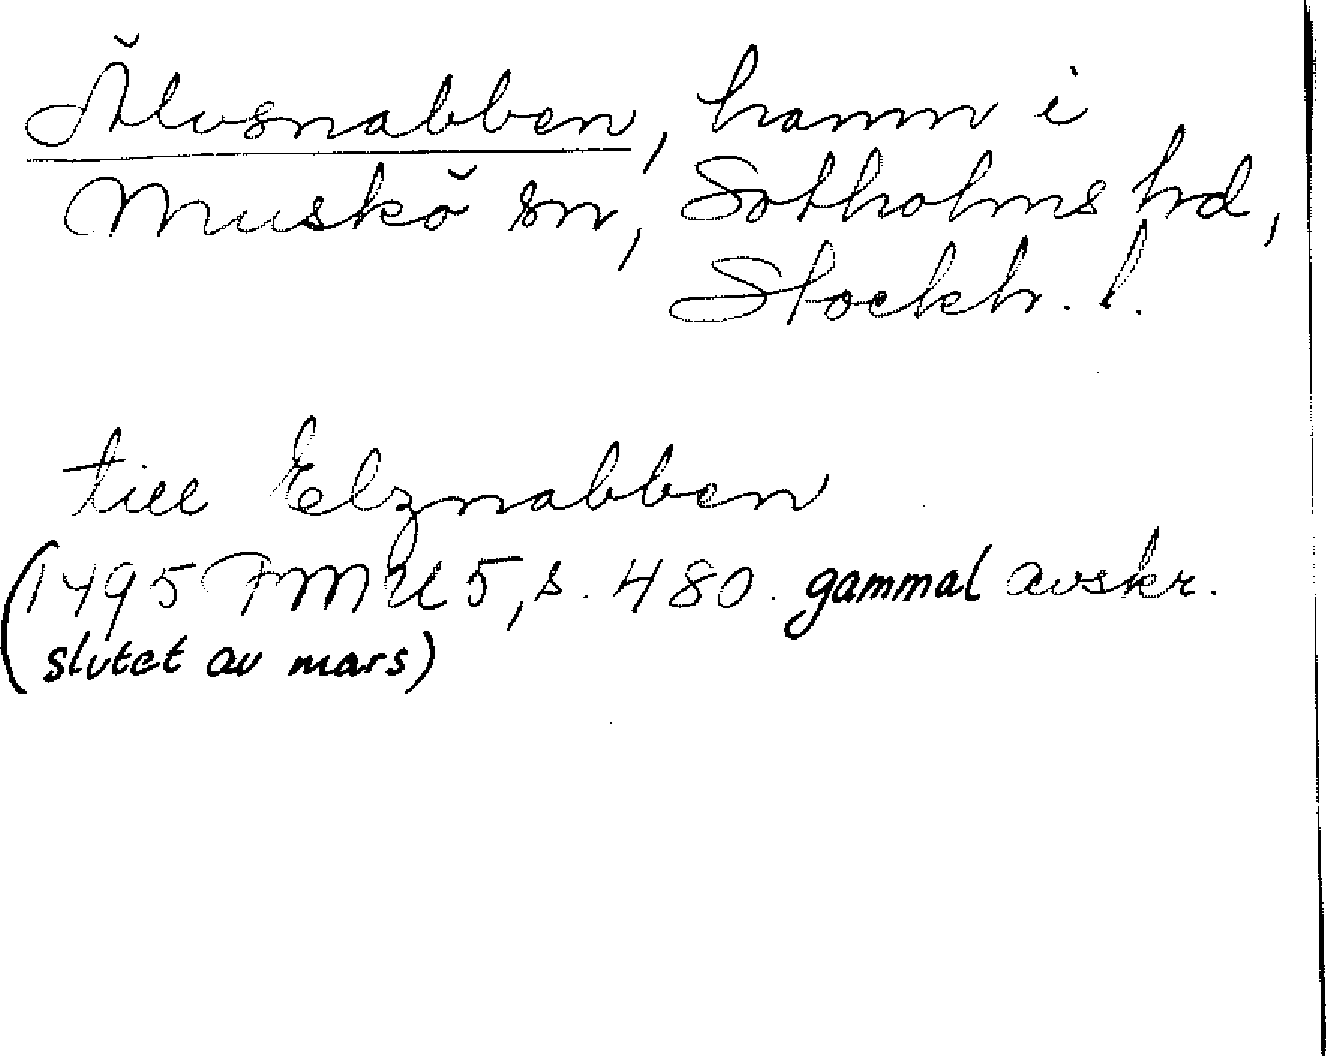 Älvsnabben, hamn i
Muskö sn, Sotholms hd,
Stockh. l.
till Elznabben
(1495 FMU 5, s. 480. gammal avskr.
slutet av mars)